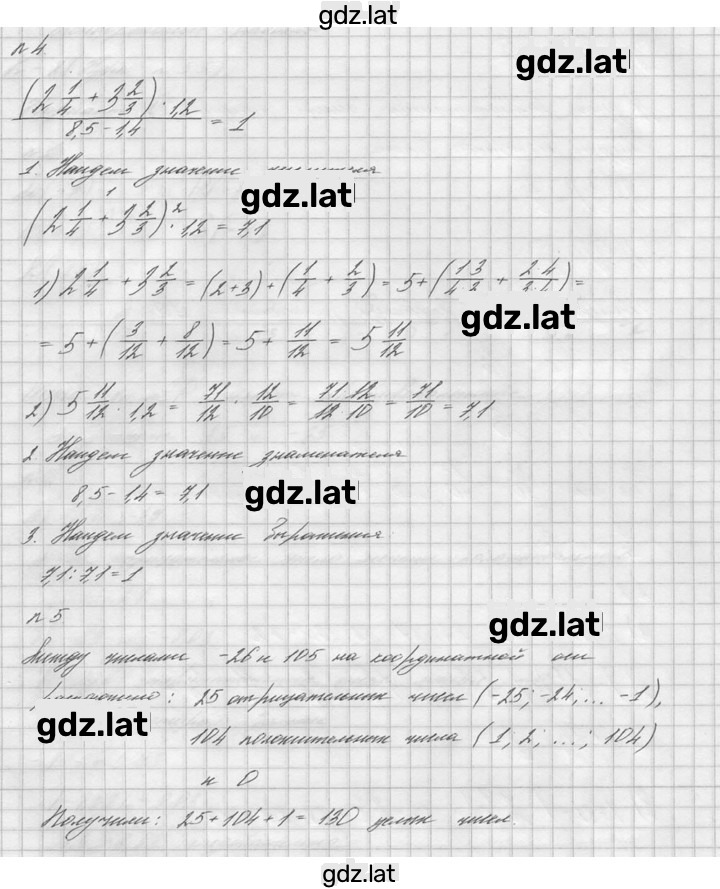 gdz.lat
n 4
gdz.lat
(2 1/4 + 3 2/3) · 1,2
8,5 - 1,4 = 1
1. Найдем значение
gdz.lat
1 2
(2 1/4 + 3 2/3) · 1,2 = 7,1
1) 2 1/4 + 3 2/3 = (2+3) + (1/4 + 2/3) = 5 + (1·3/4·3 + 2·4/3·4) =
gdz.lat
= 5 + (3/12 + 8/12) = 5 + 11/12 = 5 11/12
2) 5 11/12 · 1,2 = 71/12 · 12/10 = 71 12/12 10 = 71/10 = 7,1
2 Найдем значение знаменателя
8,5 - 1,4 = 7,1
gdz.lat
3. Найдем значение выражения.
7,1 : 7,1 = 1
n 5
gdz.lat
Между числами -26 и 105 на координатной оси
: 25 отрицательных чисел (-25; -24; ... -1),
gdz.lat
104 положительных числа (1; 2; ...; 104)
и 0
Получили: 25 + 104 + 1 = 130 целых чисел.
gdz.lat